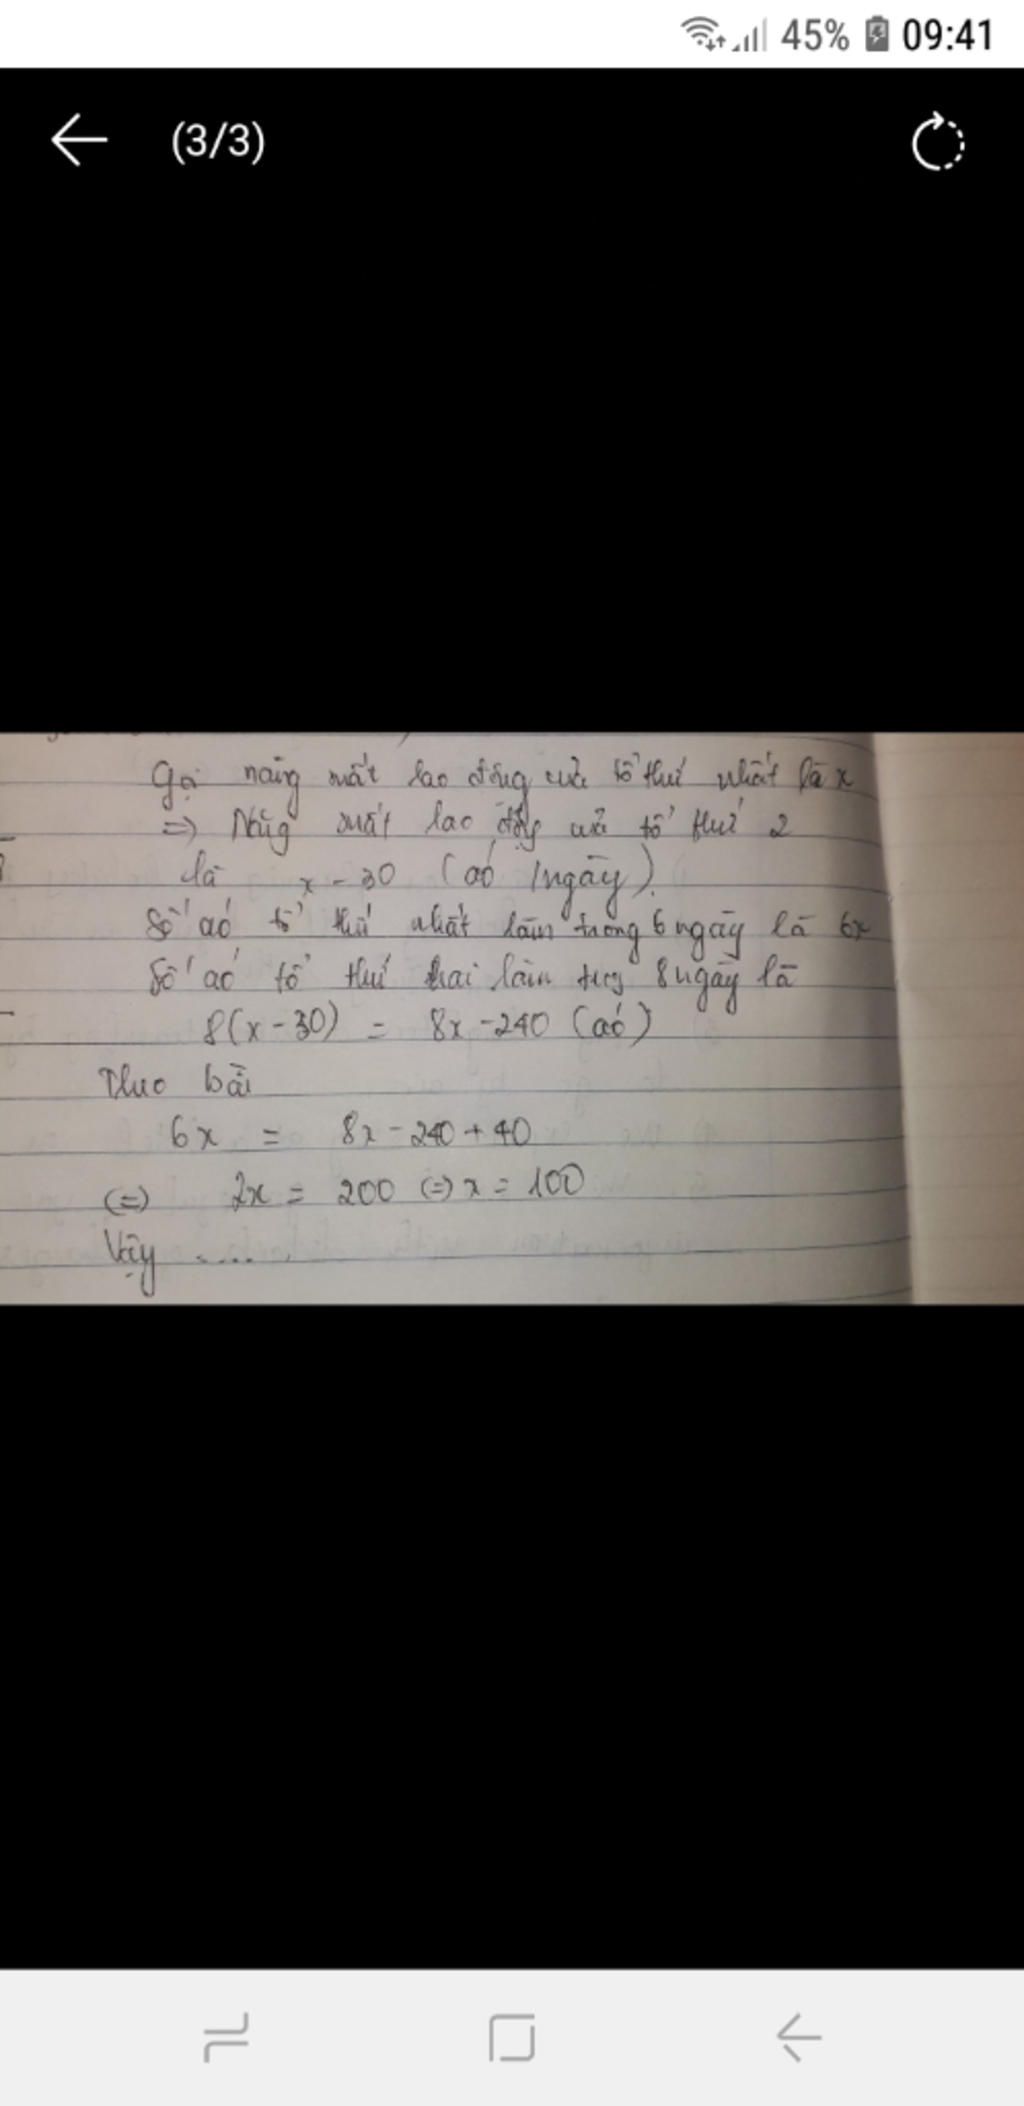 45% 09:41
(3/3)
Gọi năng suất lao động của tổ thứ nhất là x
=> Năng suất lao động của tổ thứ 2
là x - 30 (áo /ngày).
Số áo tổ thứ nhất làm trong 6 ngày là 6x
Số áo tổ thứ hai làm trong 8 ngày là
8(x - 30) = 8x - 240 (áo)
Theo bài
6x = 8x - 240 + 40
(=) 2x = 200 (=) x = 100
Vậy .....